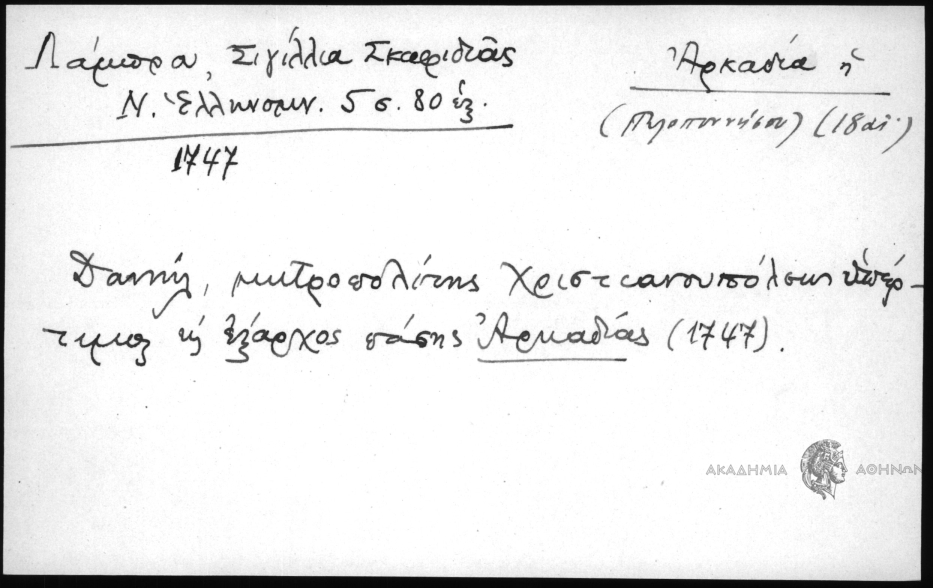 Λάμπρου, Σιγίλλια Σκαφιδιᾶς
Ν. Ἑλληνομν. 5 σ. 80 ἑξ.
1747
Ἀρκαδία ἡ
(Πελοποννήσου) (18 αἰ.)
Δανιήλ, μητροπολίτης Χριστιανουπόλεως ὑπέρ-
τιμος καὶ ἔξαρχος πάσης Ἀρκαδίας (1747).
ΑΚΑΔΗΜΙΑ ΑΘΗΝΩΝ